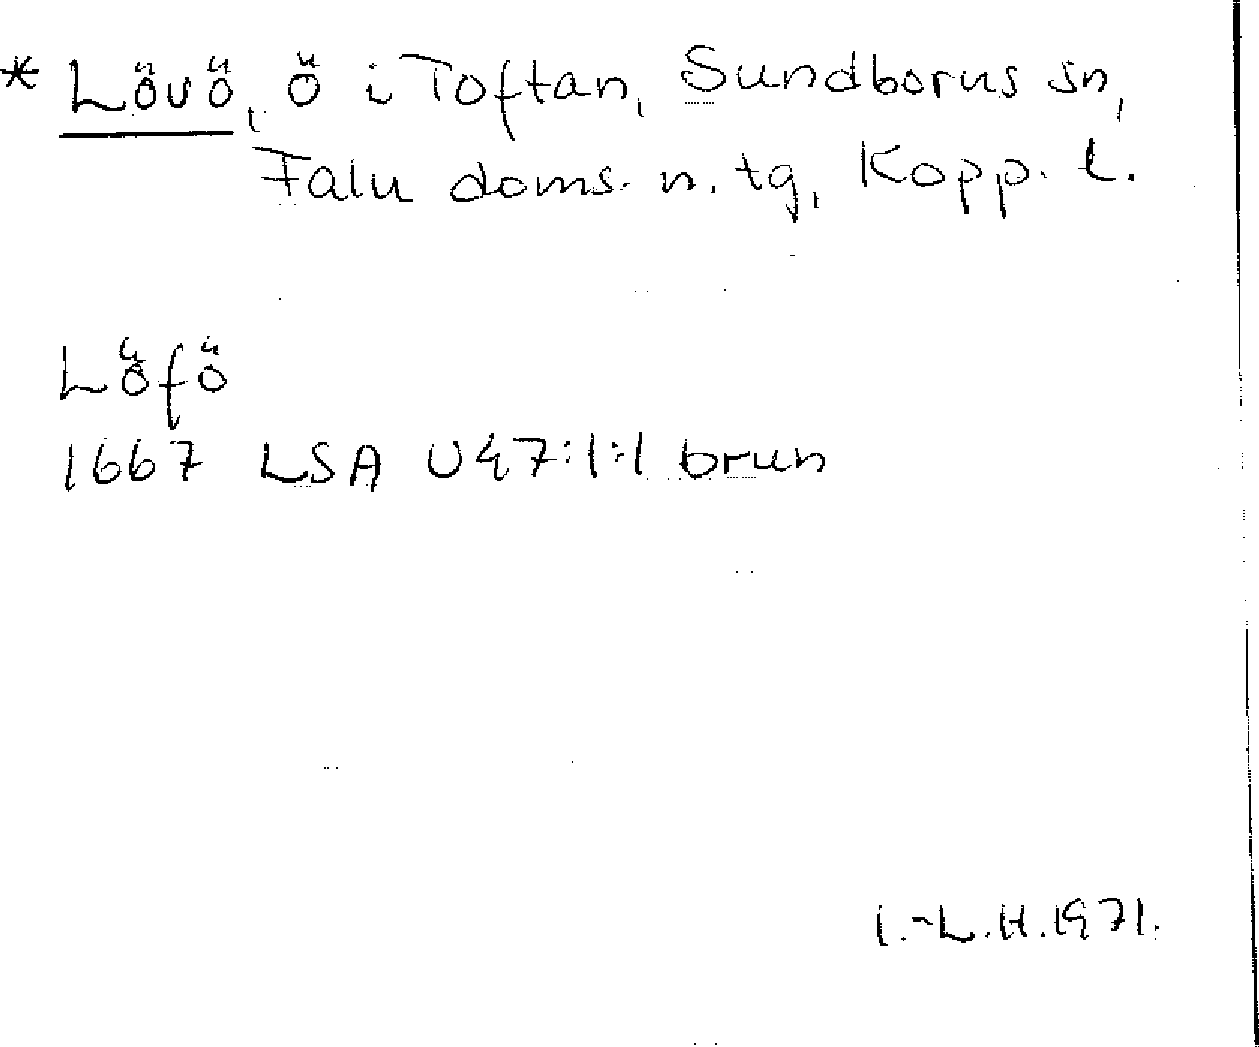 * Lövö, ö i Toftan, Sundborns sn,
Falu doms. n. tg, Kopp. l.
Löfö
1667 LSA U47:1:1 brun
I.-L.H.1971.